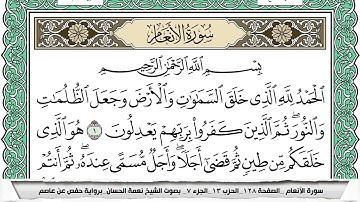 سورة الأنعام
بِسْمِ اللَّهِ الرَّحْمَٰنِ الرَّحِيمِ
الْحَمْدُ لِلَّهِ الَّذِي خَلَقَ السَّمَاوَاتِ وَالْأَرْضَ وَجَعَلَ الظُّلُمَاتِ
وَالنُّورَ ۖ ثُمَّ الَّذِينَ كَفَرُوا بِرَبِّهِمْ يَعْدِلُونَ ١ هُوَ الَّذِي
خَلَقَكُم مِّن طِينٍ ثُمَّ قَضَىٰ أَجَلًا ۖ وَأَجَلٌ مُّسَمًّى عِندَهُ ۖ ثُمَّ أَنتُمْ
سورة الأنعام .. الصفحة ١٢٨ .. الحزب ١٣ .. الجزء ٧ .. بصوت الشيخ نعمة الحسان .. برواية حفص عن عاصم